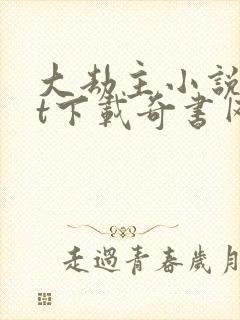 大劫主小說
t下載奇書
走過青春歲月